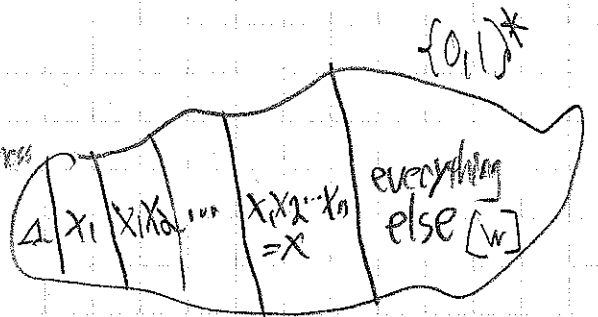 {0,1}*
Λ x₁ x₁x₂ ... x₁x₂...xₙ everything
=x else [w]